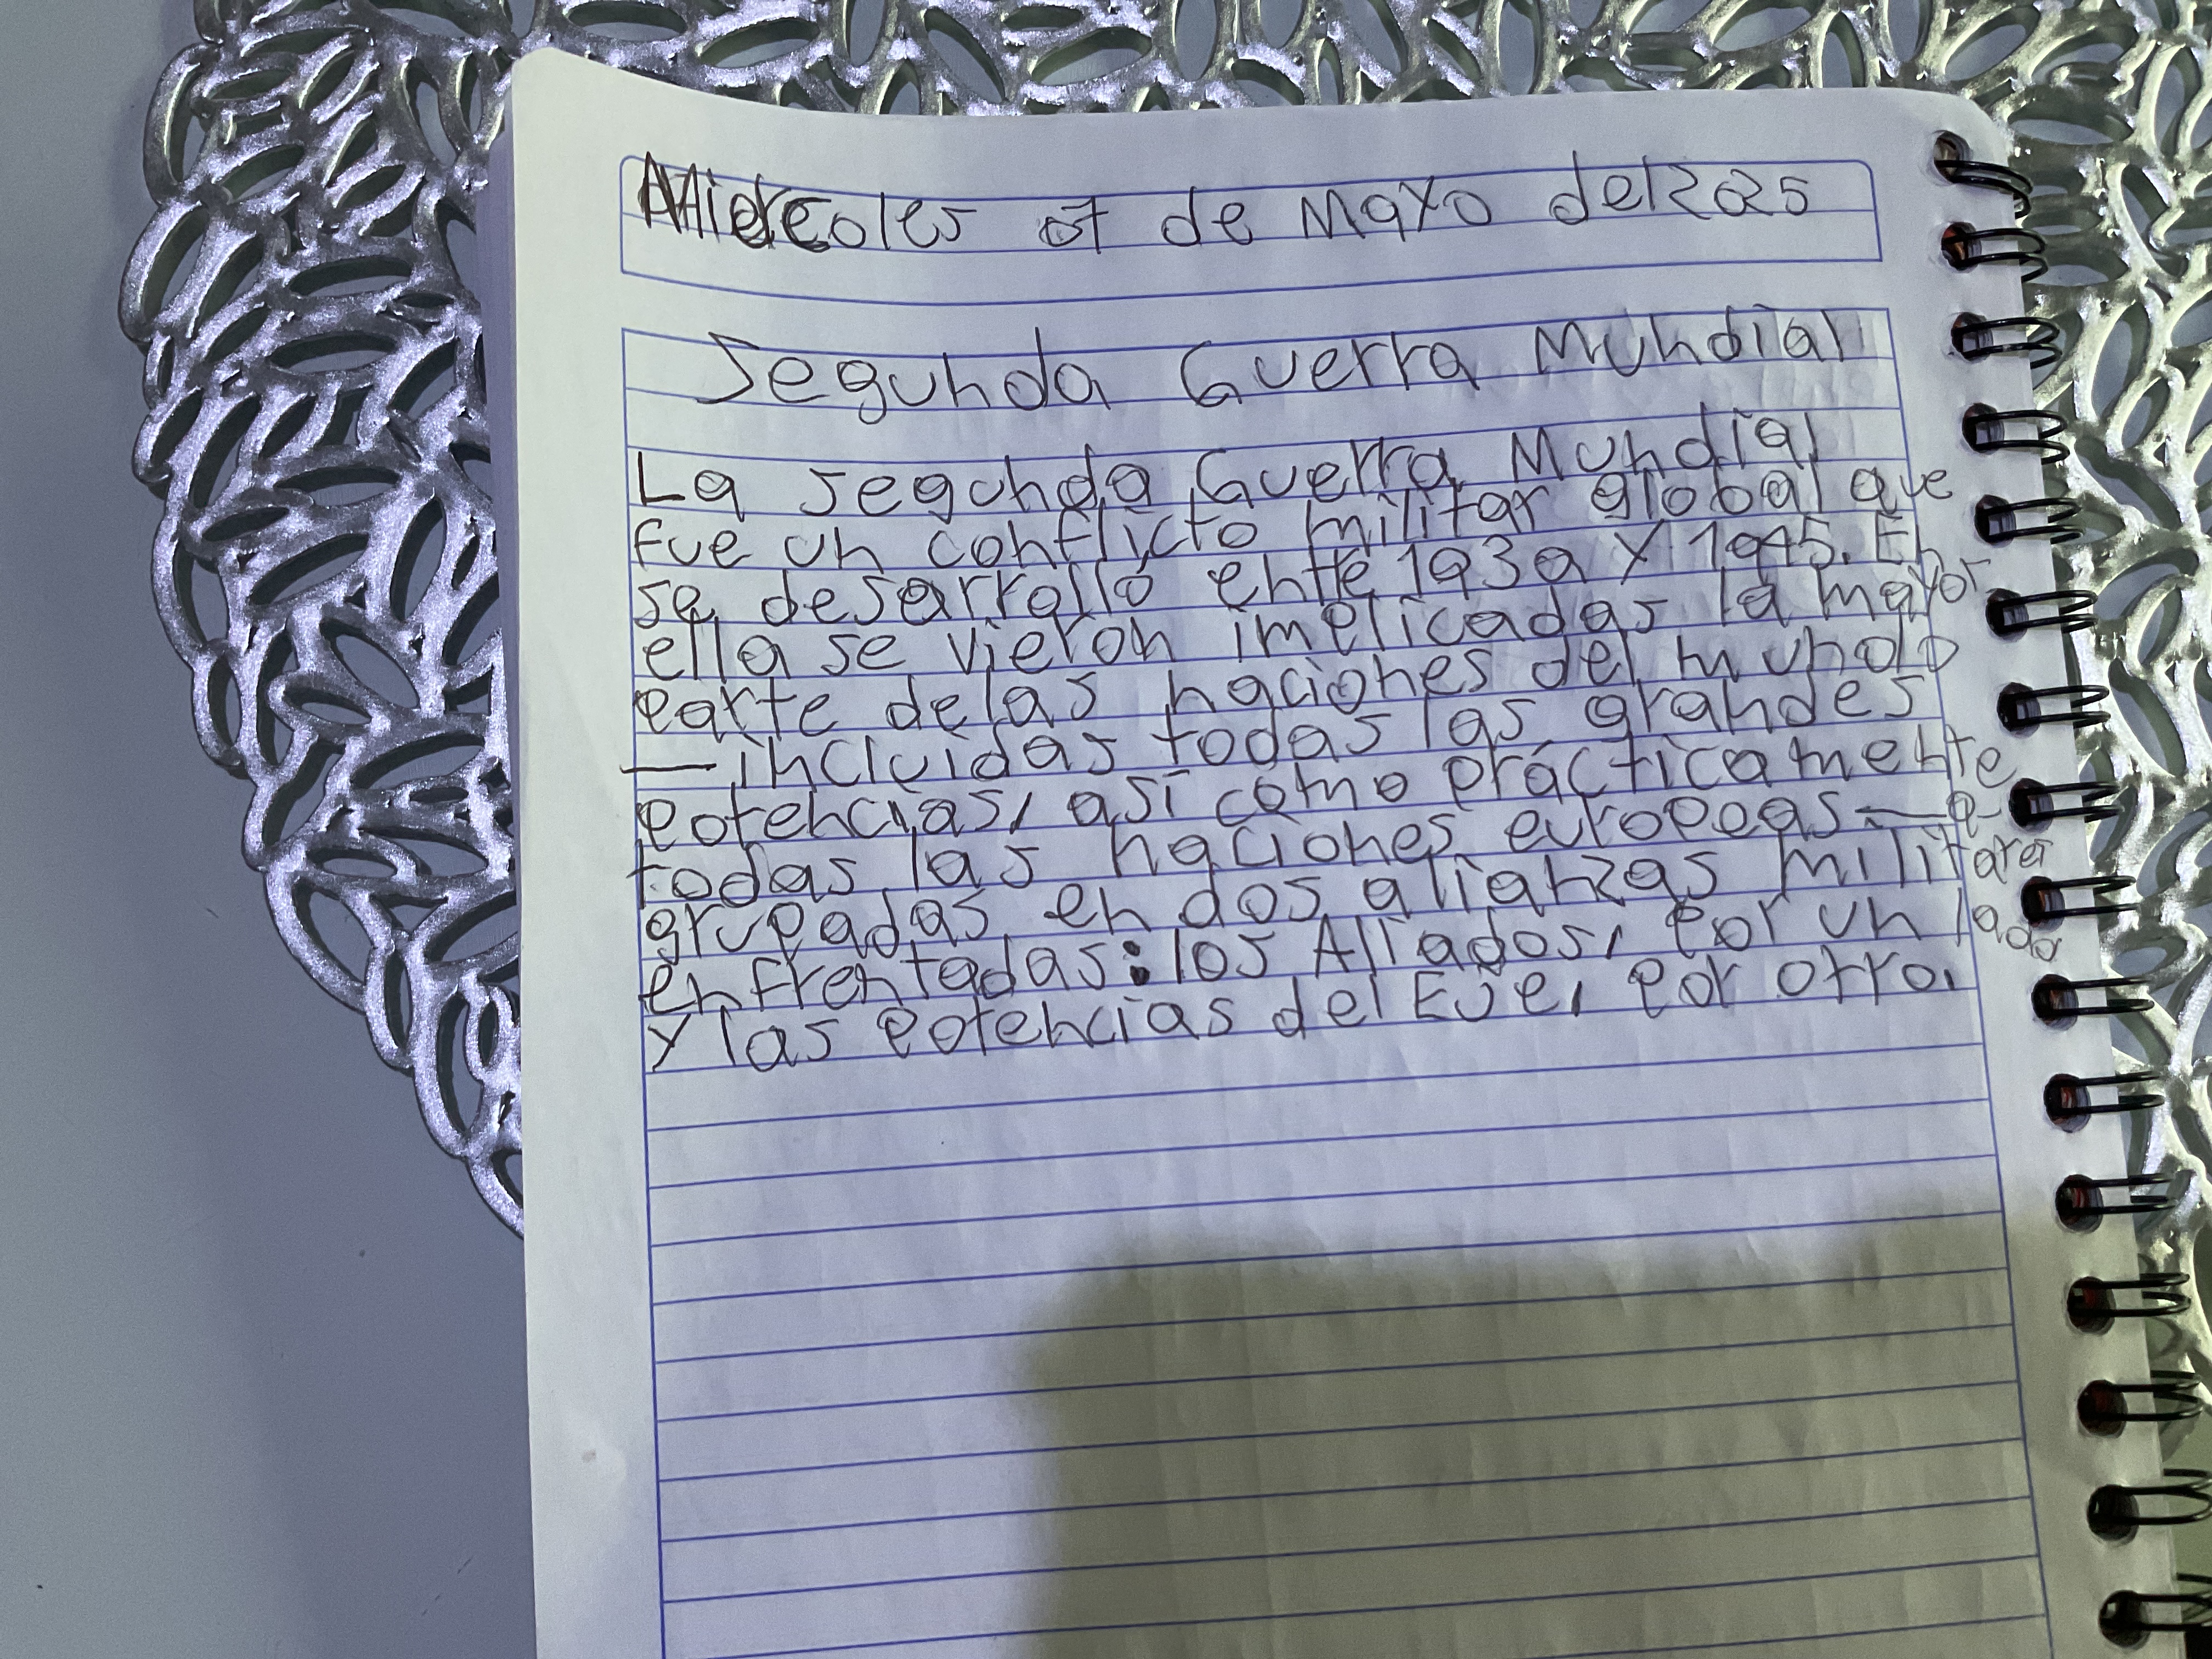 Miercoles 07 de Mayo del 2025
Segunda Guerra Mundial
La segunda Guerra Mundial
fue un conflicto militar global que
se desarrolló entre 1939 y 1945. En
ella se vieron implicadas la mayor
parte de las naciones del mundo
—incluidas todas las grandes
potencias, así como prácticamente
todas las naciones europeas— a-
grupadas en dos alianzas militares
enfrentadas: los Aliados, por un lado
y las potencias del Eje, por otro.